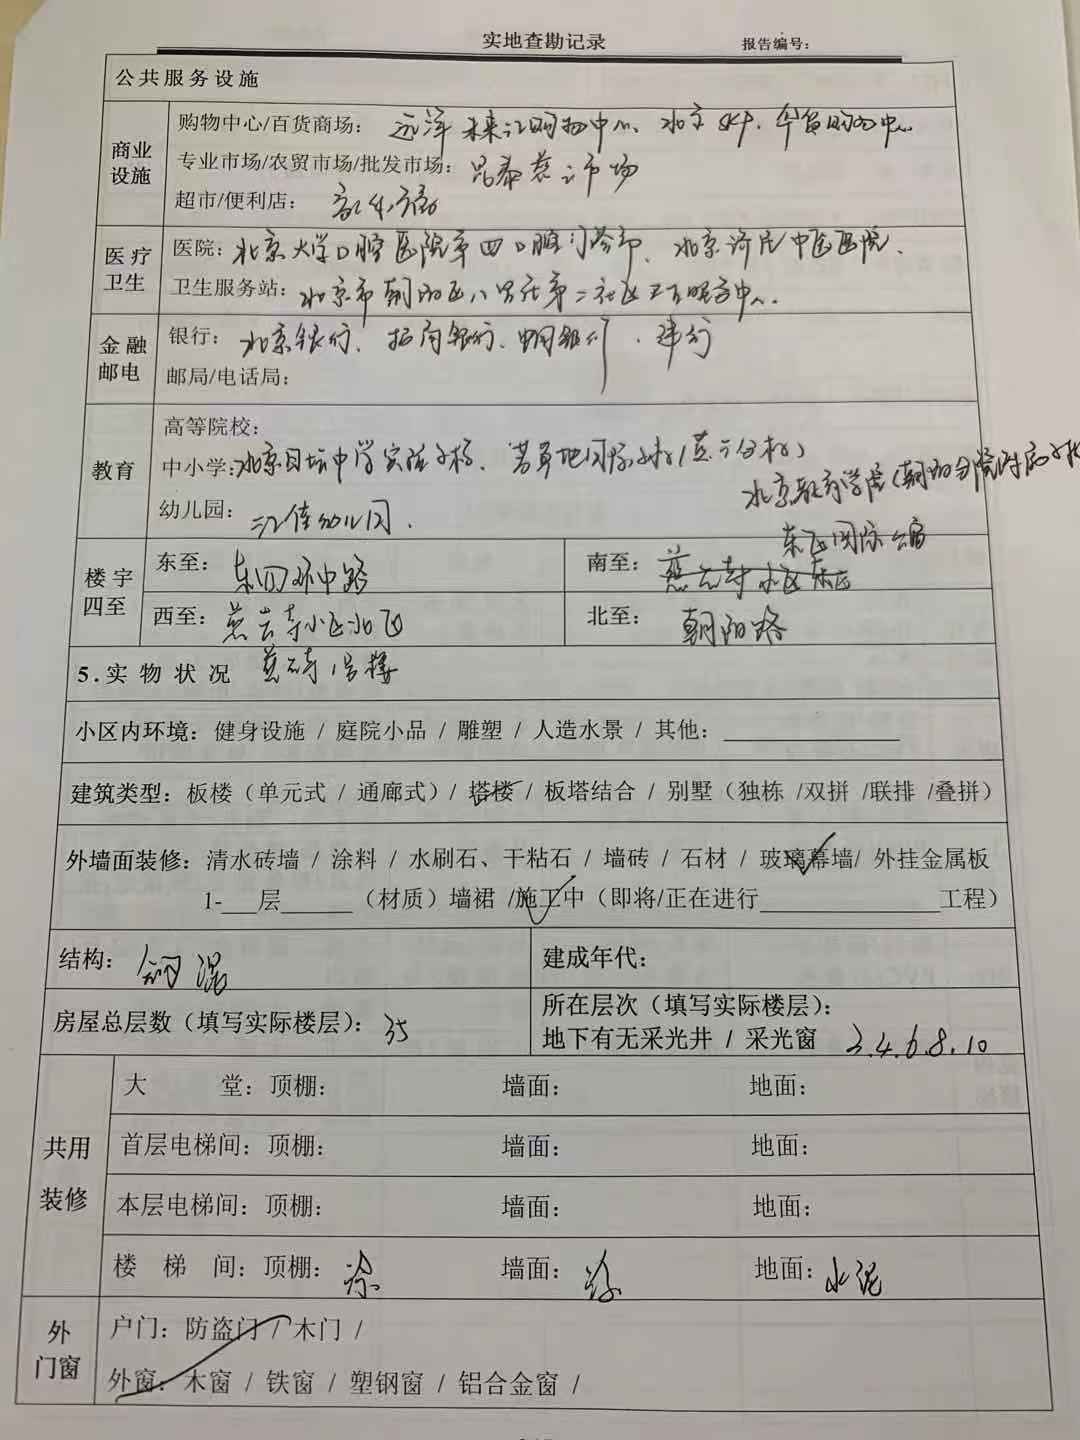 实地查勘记录 报告编号：
公共服务设施
商业设施
购物中心/百货商场： 远洋未来汇购物中心、北京SKP、华贸购物中心
专业市场/农贸市场/批发市场： 市场
超市/便利店：
医疗卫生
医院：北京大学口腔医院第四口腔门诊部、北京 中医医院、
卫生服务站：北京市朝阳区八里庄第二社区卫生服务中心
金融邮电
银行： 北京银行、招商银行、中国银行、建行
邮局/电话局：
教育
高等院校：
中小学：北京日坛中学实验学校、芳草地国际学校(慈云分校)
北京教育学院(朝阳分院附属学校
幼儿园： 幼儿园、
楼宇四至
东至： 东四环中路 南至： 慈云寺小区东区 东区国际公寓
西至：慈云寺小区北区 北至： 朝阳路
5.实物状况 慈云寺1号楼
小区内环境：健身设施 / 庭院小品 / 雕塑 / 人造水景 / 其他：
建筑类型：板楼（单元式 / 通廊式）/ 塔楼 / 板塔结合 / 别墅（独栋 /双拼 /联排 /叠拼）
外墙面装修：清水砖墙 / 涂料 / 水刷石、干粘石 / 墙砖 / 石材 / 玻璃幕墙/ 外挂金属板
1-___层______（材质）墙裙 /施工中（即将/正在进行_______________工程）
结构： 钢混 建成年代：
房屋总层数（填写实际楼层）：35 所在层次（填写实际楼层）：
地下有无采光井 / 采光窗 3.4.6.8.10
共用装修
大 堂：顶棚： 墙面： 地面：
首层电梯间：顶棚： 墙面： 地面：
本层电梯间：顶棚： 墙面： 地面：
楼 梯 间：顶棚：涂 墙面：涂 地面：水泥
外门窗
户门：防盗门 / 木门 /
外窗：木窗 / 铁窗 / 塑钢窗 / 铝合金窗 /